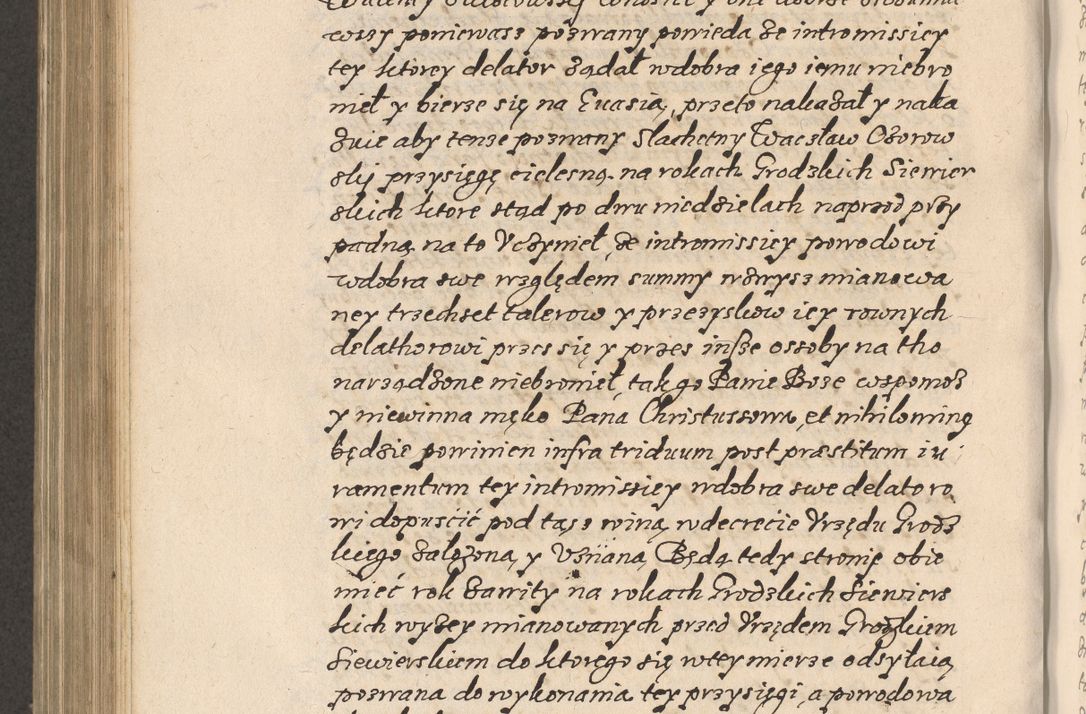 wszy poniewasz pozwany powieda że intromissiey
tey ktorey delator żądał wdobra iego iemu niebro
nieł y bierze się na Euasią, przeto nakazał y naka
zuie aby tenże pozwany Slachetny Wacsław Ożorow
skij przysięgę cielesną na rokach Grodzkich Siewier
skich ktore stąd po dwu niedzielach naprzod przy
padną na to Vczynieł, że intromissiey powodowi
wdobra swe względem summy wzwysz mianowa
ney trzechset talerow y przezyskow iey rownych
delathorowi przes się y przes insze ossoby na tho
narządzone niebronieł, tak go Panie Boże wspomoż
y niewinna męko Pana Christussowa, et nihilominq
będzie powinien infra triduum post præstitum iu
ramentum tey intromissiey wdobra swe delatoro
wi dopuścić pod tąsz winą wdecrecie Vrzędu Grodz
kiego założoną, y Vznaną Będą tedy stronię obie
mieć rok zawity na rokach Grodzkich Siewiers
kich wyżey mianowanych przed Vrzędem Grodzkiem
Siewierskiem do ktorego się wtey mierze odsyłaią
pozwana do wykonania tey przysięgi, a powodowa